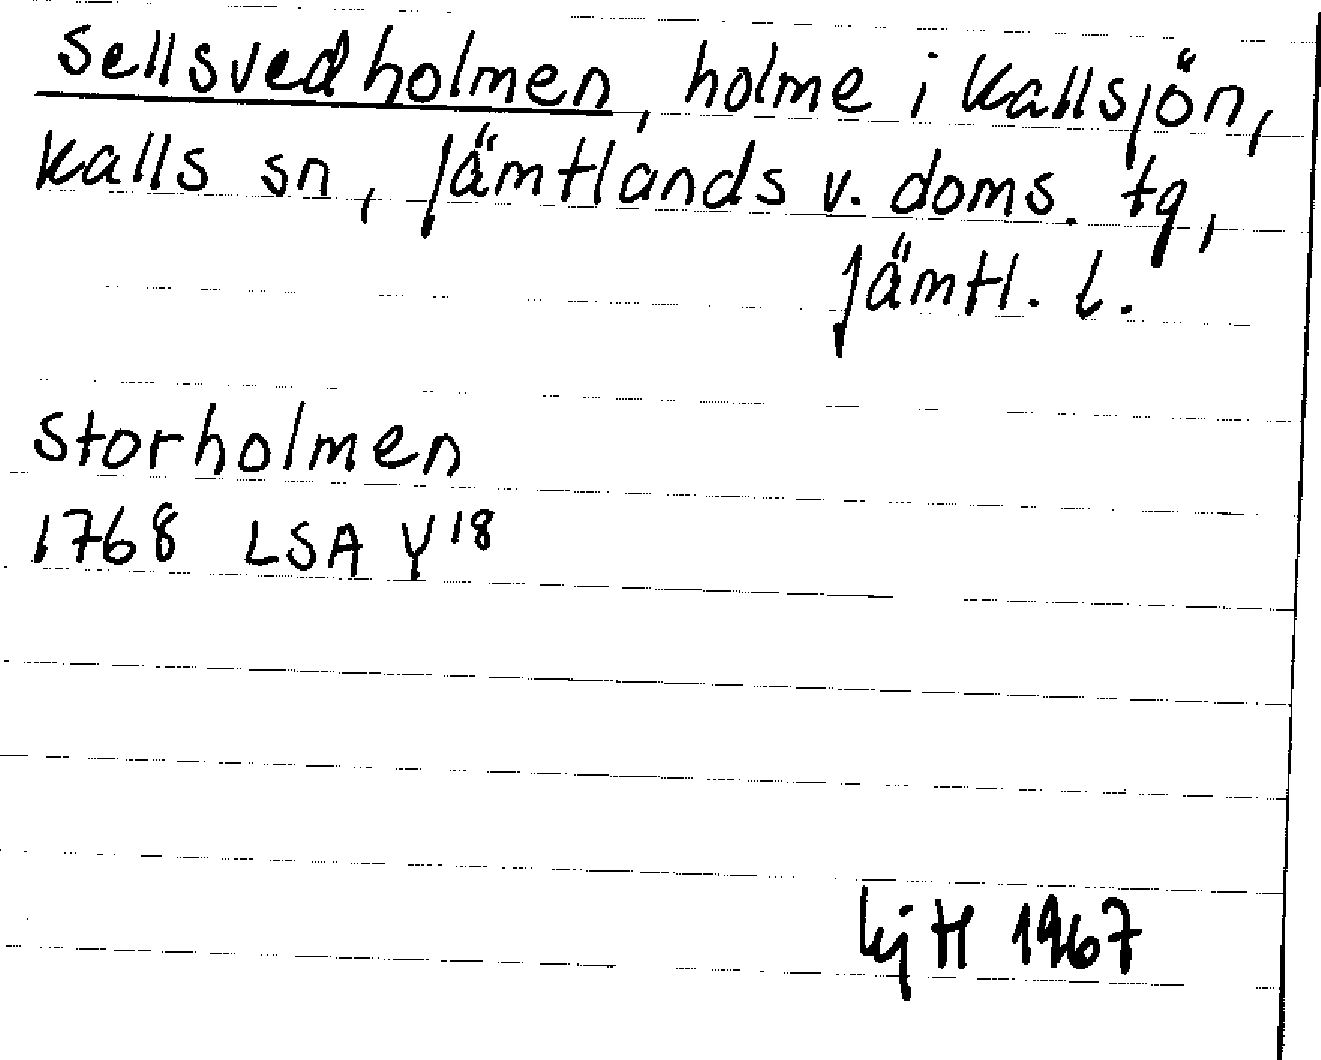 Sellsvedholmen, holme i Kallsjön,
Kalls sn, Jämtlands v. doms. tg,
Jämtl. l.
Storholmen
1768 LSA Y18
kjH 1967